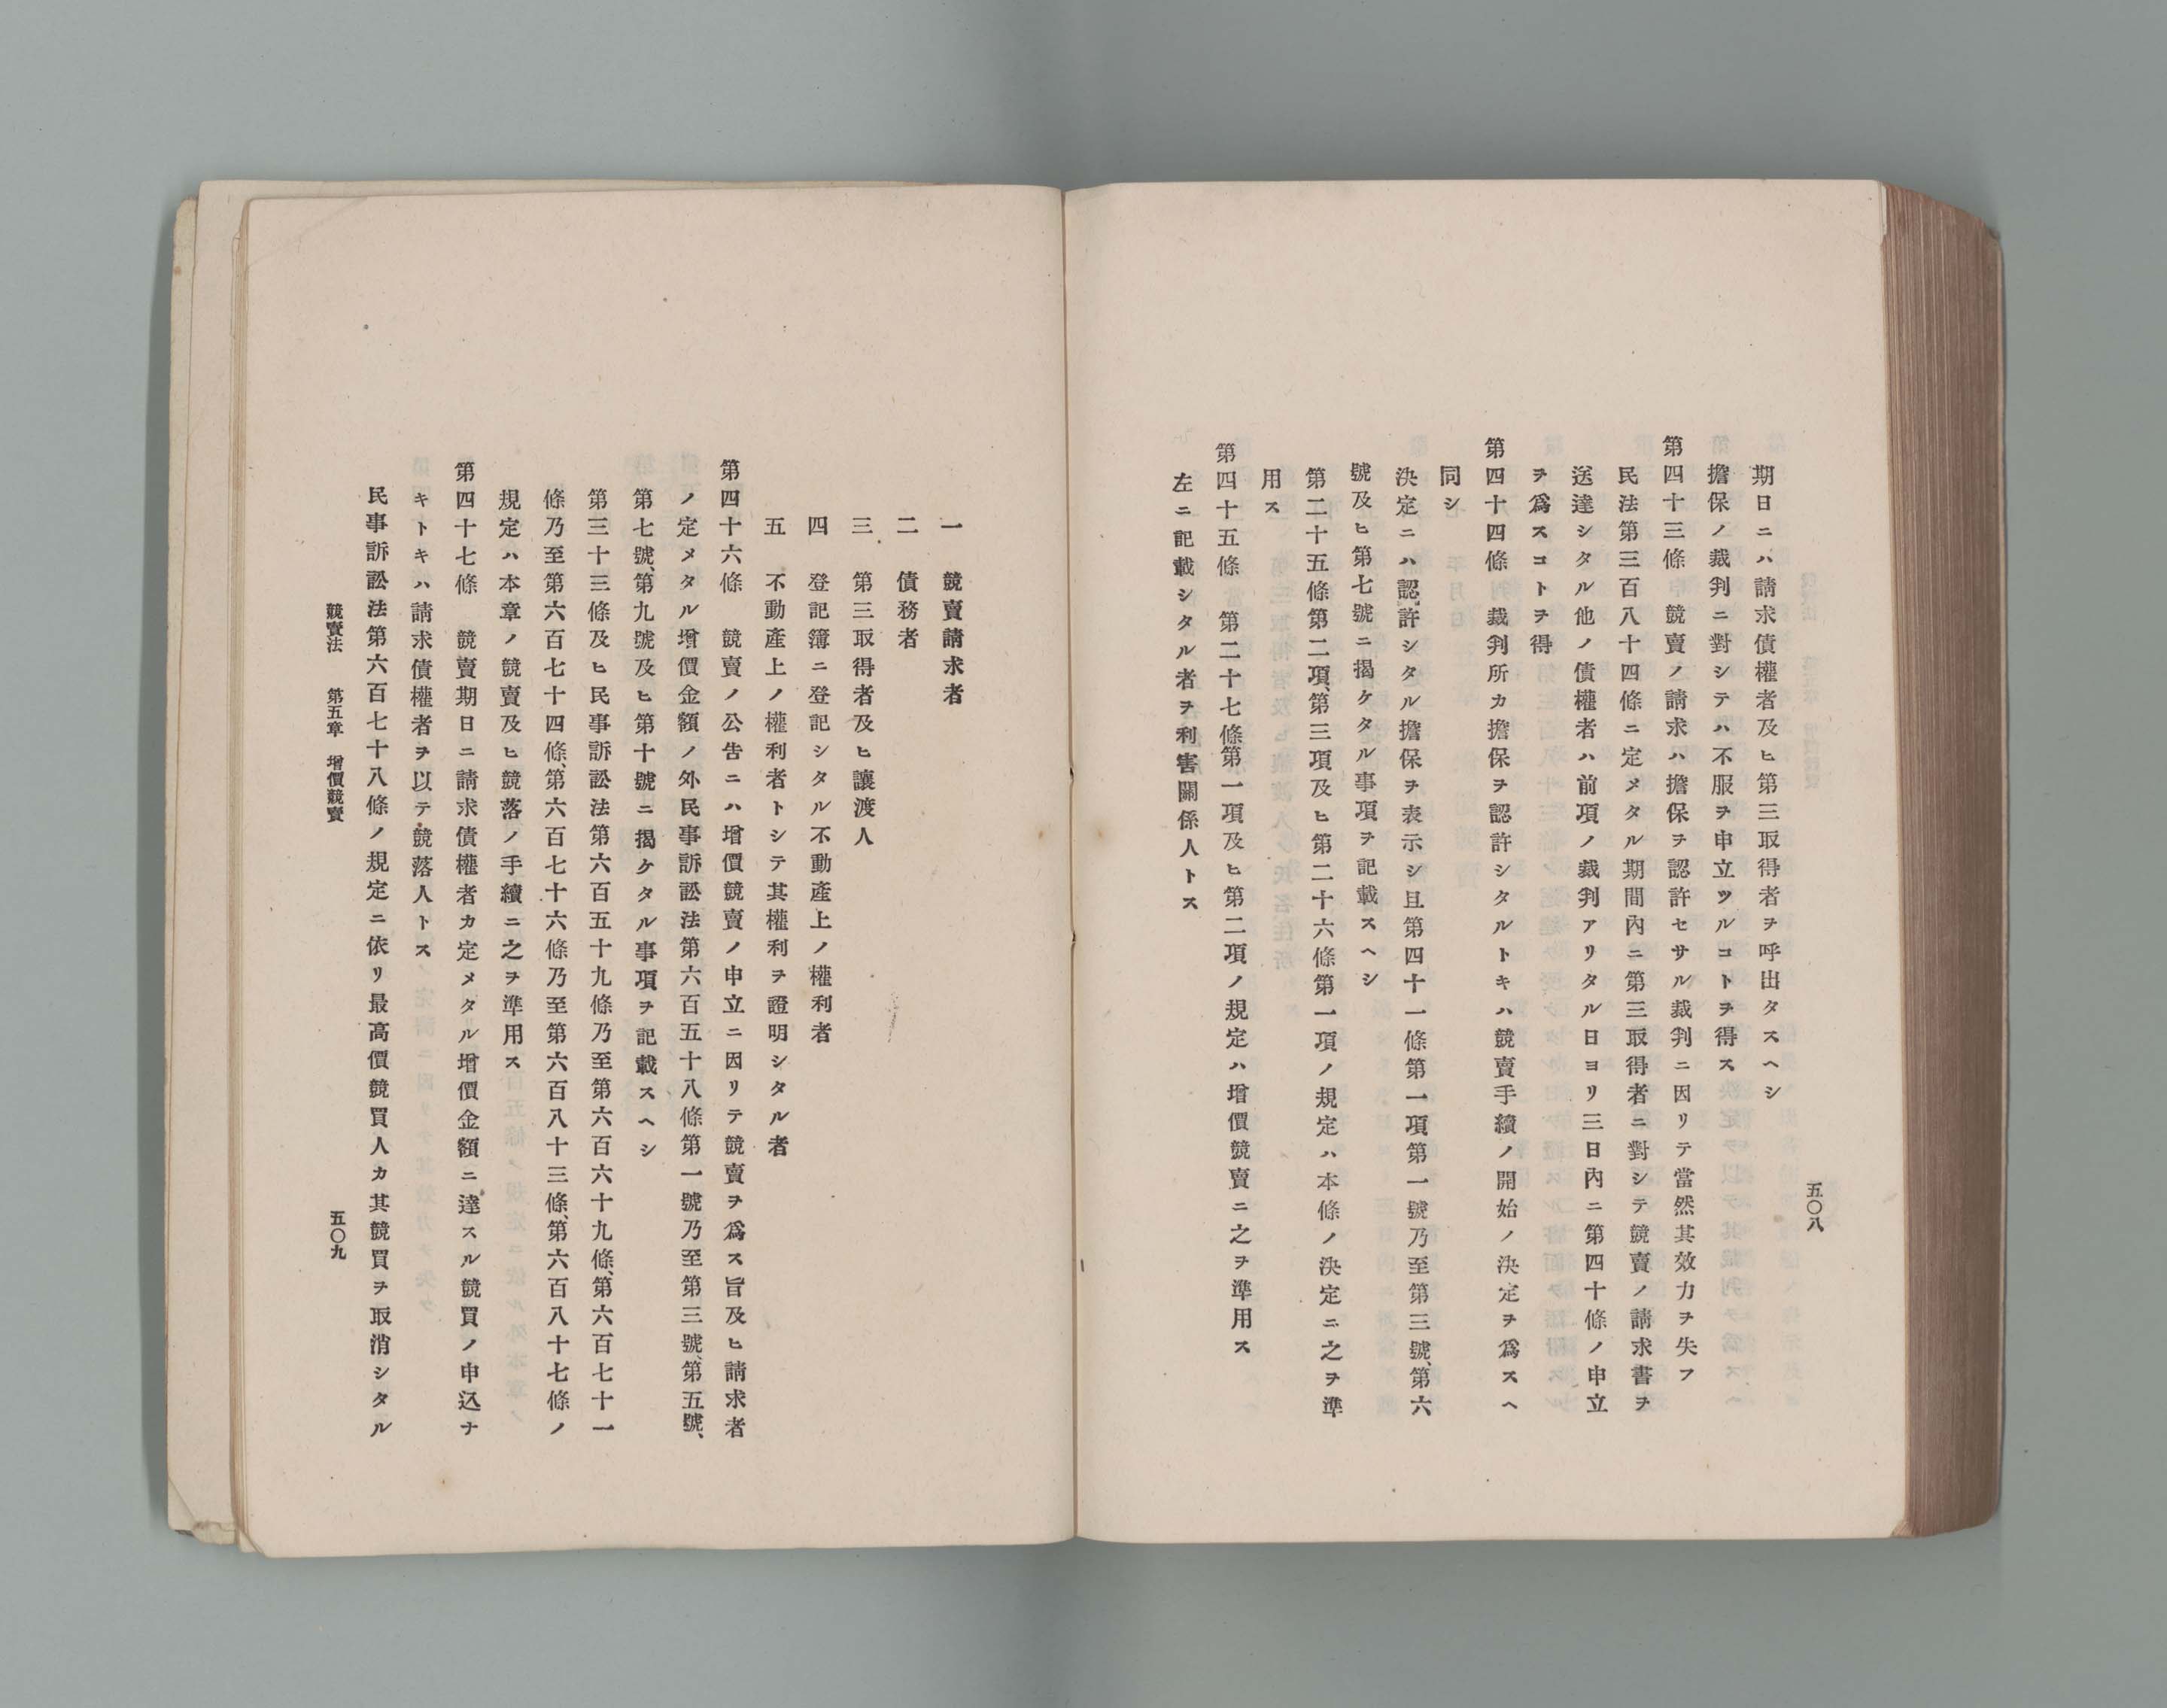 五〇八
期日ニハ請求債權者及ヒ第三取得者ヲ呼出タスヘシ
擔保ノ裁判ニ對シテハ不服ヲ申立ツルコトヲ得ス
第四十三條　競賣ノ請求ハ擔保ヲ認許セサル裁判ニ因リテ當然其效力ヲ失フ
民法第三百八十四條ニ定メタル期間內ニ第三取得者ニ對シテ競賣ノ請求書ヲ
送達シタル他ノ債權者ハ前項ノ裁判アリタル日ヨリ三日內ニ第四十條ノ申立
ヲ爲スコトヲ得
第四十四條　裁判所カ擔保ヲ認許シタルトキハ競賣手續ノ開始ノ決定ヲ爲スヘ
同シ
決定ニハ認許シタル擔保ヲ表示シ且第四十一條第一項第一號乃至第三號、第六
號及ヒ第七號ニ揭ケタル事項ヲ記載スヘシ
第二十五條第二項、第三項及ヒ第二十六條第一項ノ規定ハ本條ノ決定ニ之ヲ準
用ス
第四十五條　第二十七條第一項及ヒ第二項ノ規定ハ增價競賣ニ之ヲ準用ス
左ニ記載シタル者ヲ利害關係人トス
一　競賣請求者
二　債務者
三　第三取得者及ヒ讓渡人
四　登記簿ニ登記シタル不動產上ノ權利者
五　不動產上ノ權利者トシテ其權利ヲ證明シタル者
第四十六條　競賣ノ公吿ニハ增價競賣ノ申立ニ因リテ競賣ヲ爲ス旨及ヒ請求者
ノ定メタル增價金額ノ外民事訴訟法第六百五十八條第一號乃至第三號、第五號、
第七號、第九號及ヒ第十號ニ揭ケタル事項ヲ記載スヘシ
第三十三條及ヒ民事訴訟法第六百五十九條乃至第六百六十九條、第六百七十一
條乃至第六百七十四條、第六百七十六條乃至第六百八十三條、第六百八十七條ノ
規定ハ本章ノ競賣及ヒ競落ノ手續ニ之ヲ準用ス
第四十七條　競賣期日ニ請求債權者カ定メタル增價金額ニ達スル競買ノ申込ナ
キトキハ請求債權者ヲ以テ競落人トス
民事訴訟法第六百七十八條ノ規定ニ依リ最高價競買人カ其競買ヲ取消シタル
競賣法　第五章　增價競賣
五〇九